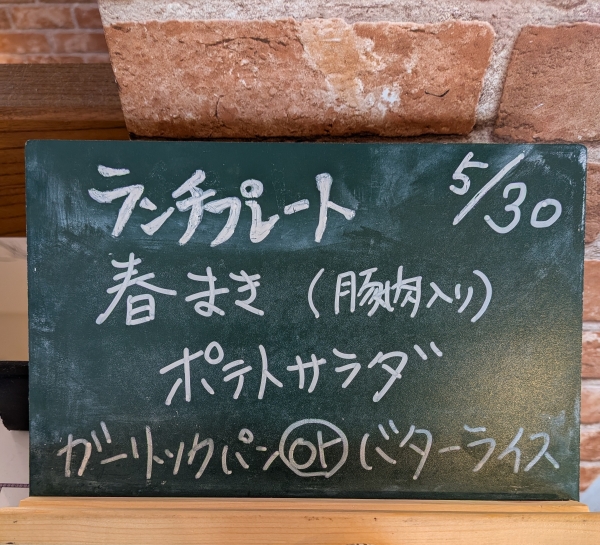 ランチプレート 5/30
春まき (豚肉入り)
ポテトサラダ
ガーリックパン or バターライス